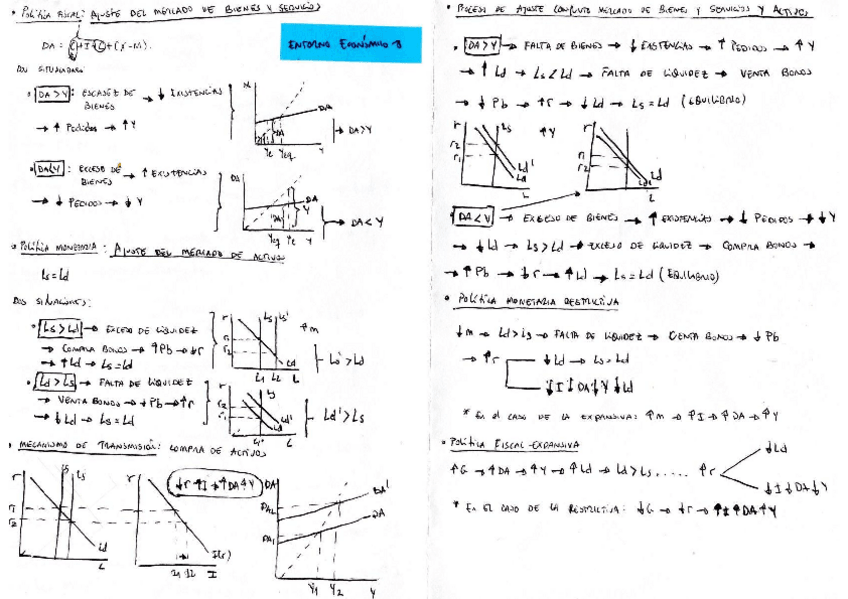 ° Política fiscal: Ajuste del mercado de bienes y servicios
DA = C+I+G+(X-M).
Entorno Económico B
Dos situaciones:
° DA > Y : Escasez de bienes → ↓ existencias
→ ↑ Pedidos → ↑Y
DA
DA
Ye Yeq Y
→ DA>Y
° DA<Y : Exceso de bienes → ↑ existencias
→ ↓ Pedidos → ↓Y
DA
DA
Yeq Ye Y
→ DA < Y
° Política monetaria: Ajuste del mercado de activos
Ls = Ld
Dos situaciones:
° Ls > Ld → Exceso de liquidez
→ Compra bonos → ↑Pb → ↓r
→ ↑Ld → Ls=Ld
r Ls Ls' ↑m
r1
r2
Ld
L1 L2 L
Ls' > Ld
° Ld > Ls → Falta de liquidez
→ Venta bonos → ↓Pb → ↑r
→ ↓Ld → Ls=Ld
r Ls
r2
r1
Ld'
Ld
L
Ld' > Ls
° Mecanismo de transmisión: compra de activos
↓r ↑I ↑DA ↑Y
r Ls Ls
r1
r2
Ld
L
r
I(r)
I1 I2 I
DA
DA'
DA
DA2
DA1
Y1 Y2 Y
° Proceso de ajuste conjunto mercado de bienes y servicios y activos
° DA>Y → Falta de bienes → ↓ existencias → ↑ Pedidos → ↑Y
→ ↑Ld → Ls<Ld → Falta de liquidez → Venta bonos
→ ↓Pb → ↑r → ↓Ld → Ls=Ld (equilibrio)
r Ls ↑Y
r2
r1
Ld'
Ld
L
r
r1
r2
Ld
Ld'
L
° DA<Y → Exceso de bienes → ↑ existencias → ↓ Pedidos → ↓Y
→ ↓Ld → Ls>Ld → exceso de liquidez → Compra bonos →
→ ↑Pb → ↓r → ↑Ld → Ls=Ld (equilibrio)
° Política monetaria restrictiva
↓m → Ld>Ls → Falta de liquidez → Venta bonos → ↓Pb
→ ↑r
↓Ld → Ls=Ld
↓I ↓DA ↓Y ↓Ld
* En el caso de la expansiva: ↑m → ↑I → ↑DA → ↑Y
° Política fiscal expansiva
↑G → ↑DA → ↑Y → ↑Ld → Ld>Ls, .... ↑r
↓Ld
↓I ↓DA ↓Y
* En el caso de la restrictiva: ↓G → ↓r → ↑I ↑DA ↑Y